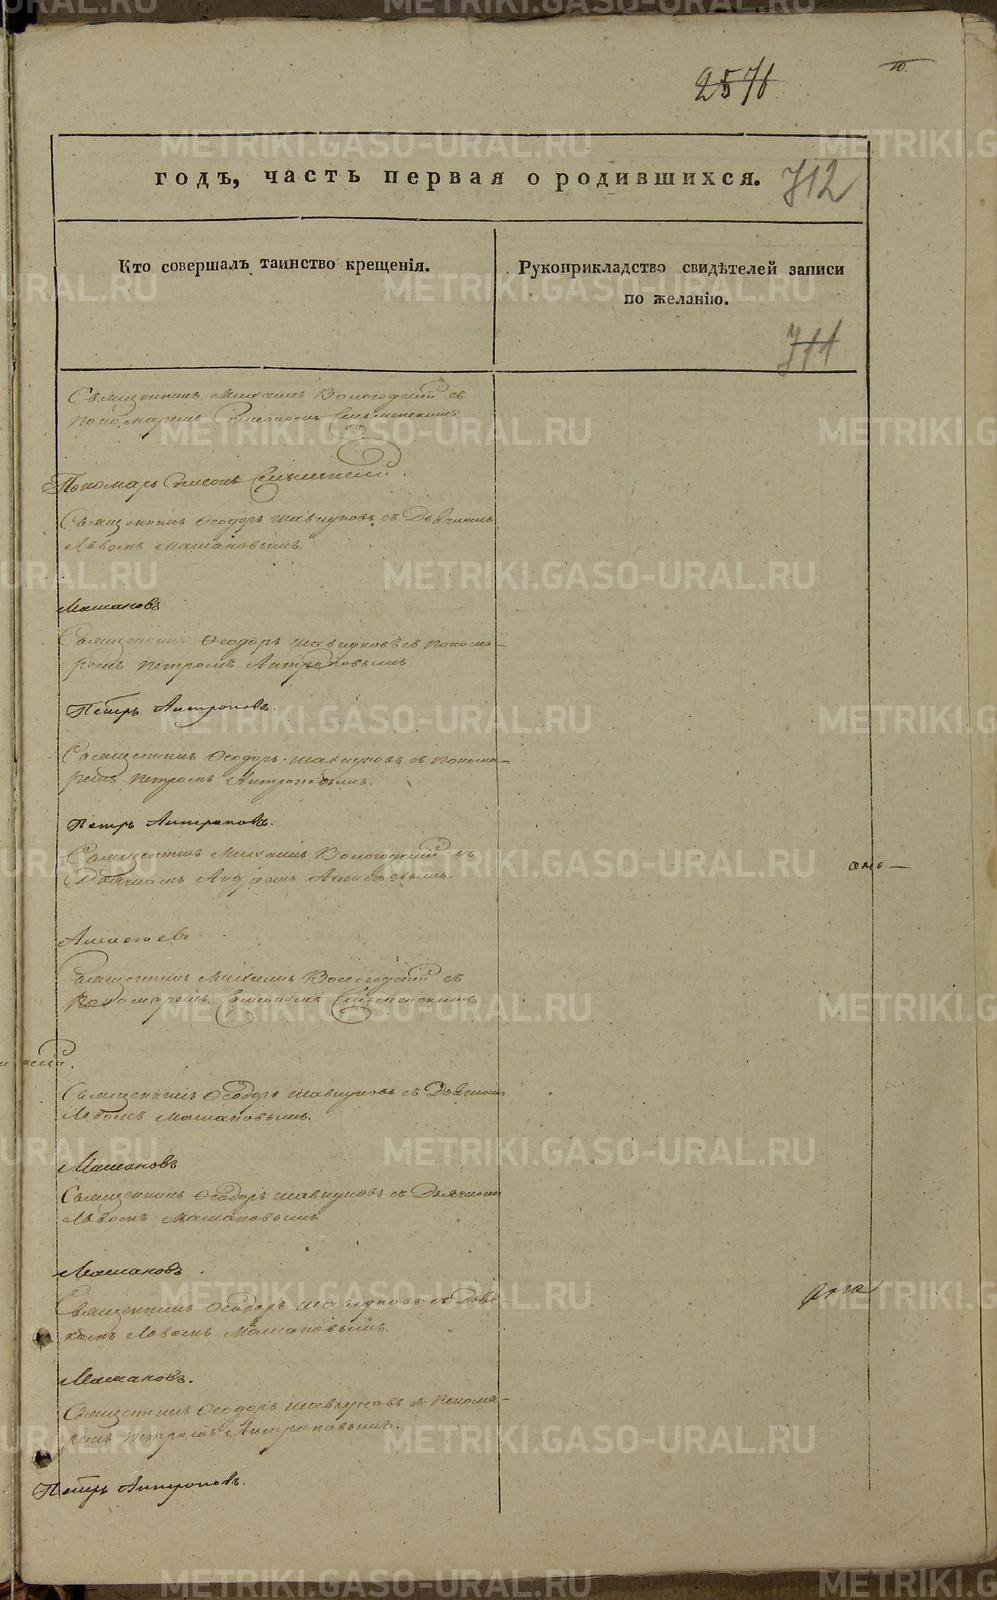 2576
10.
годъ, часть первая о родившихся.
712
Кто совершалъ таинство крещенія.
Рукоприкладство свидѣтелей записи
по желанію.
711
Священникъ Михаилъ Вологодскій съ
Пономаремъ
Пономарь
Священникъ Ѳеодоръ Шавкуновъ съ Дьячкомъ
Львомъ Машановымъ.
Машановъ
Священникъ Ѳеодоръ Шавкуновъ съ Понома-
ремъ Петромъ Антроповымъ
Петръ Антроповъ.
Священникъ Ѳеодоръ Шавкуновъ съ Понома-
ремъ Петромъ Антроповымъ.
Петръ Антроповъ.
Священникъ Михаилъ Вологодскій съ
Дьячкомъ Андреемъ
Священникъ Михаилъ Вологодскій съ
Пономаремъ
Священникъ Ѳеодоръ Шавкуновъ съ Дьячкомъ
Львомъ Машановымъ.
Машановъ
Священникъ Ѳеодоръ Шавкуновъ съ Дьячкомъ
Львомъ Машановымъ
Машановъ.
Священникъ Ѳеодоръ Шавкуновъ съ Дьяч-
комъ Львомъ Машановымъ.
Машановъ.
Священникъ Ѳеодоръ Шавкуновъ съ Понома-
ремъ Петромъ Антроповымъ.
Петръ Антроповъ.
METRIKI.GASO-URAL.RU